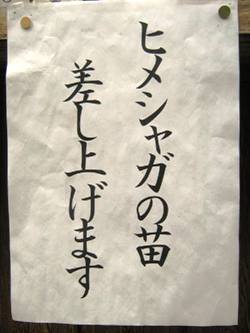 ヒメシャガの苗
差し上げます